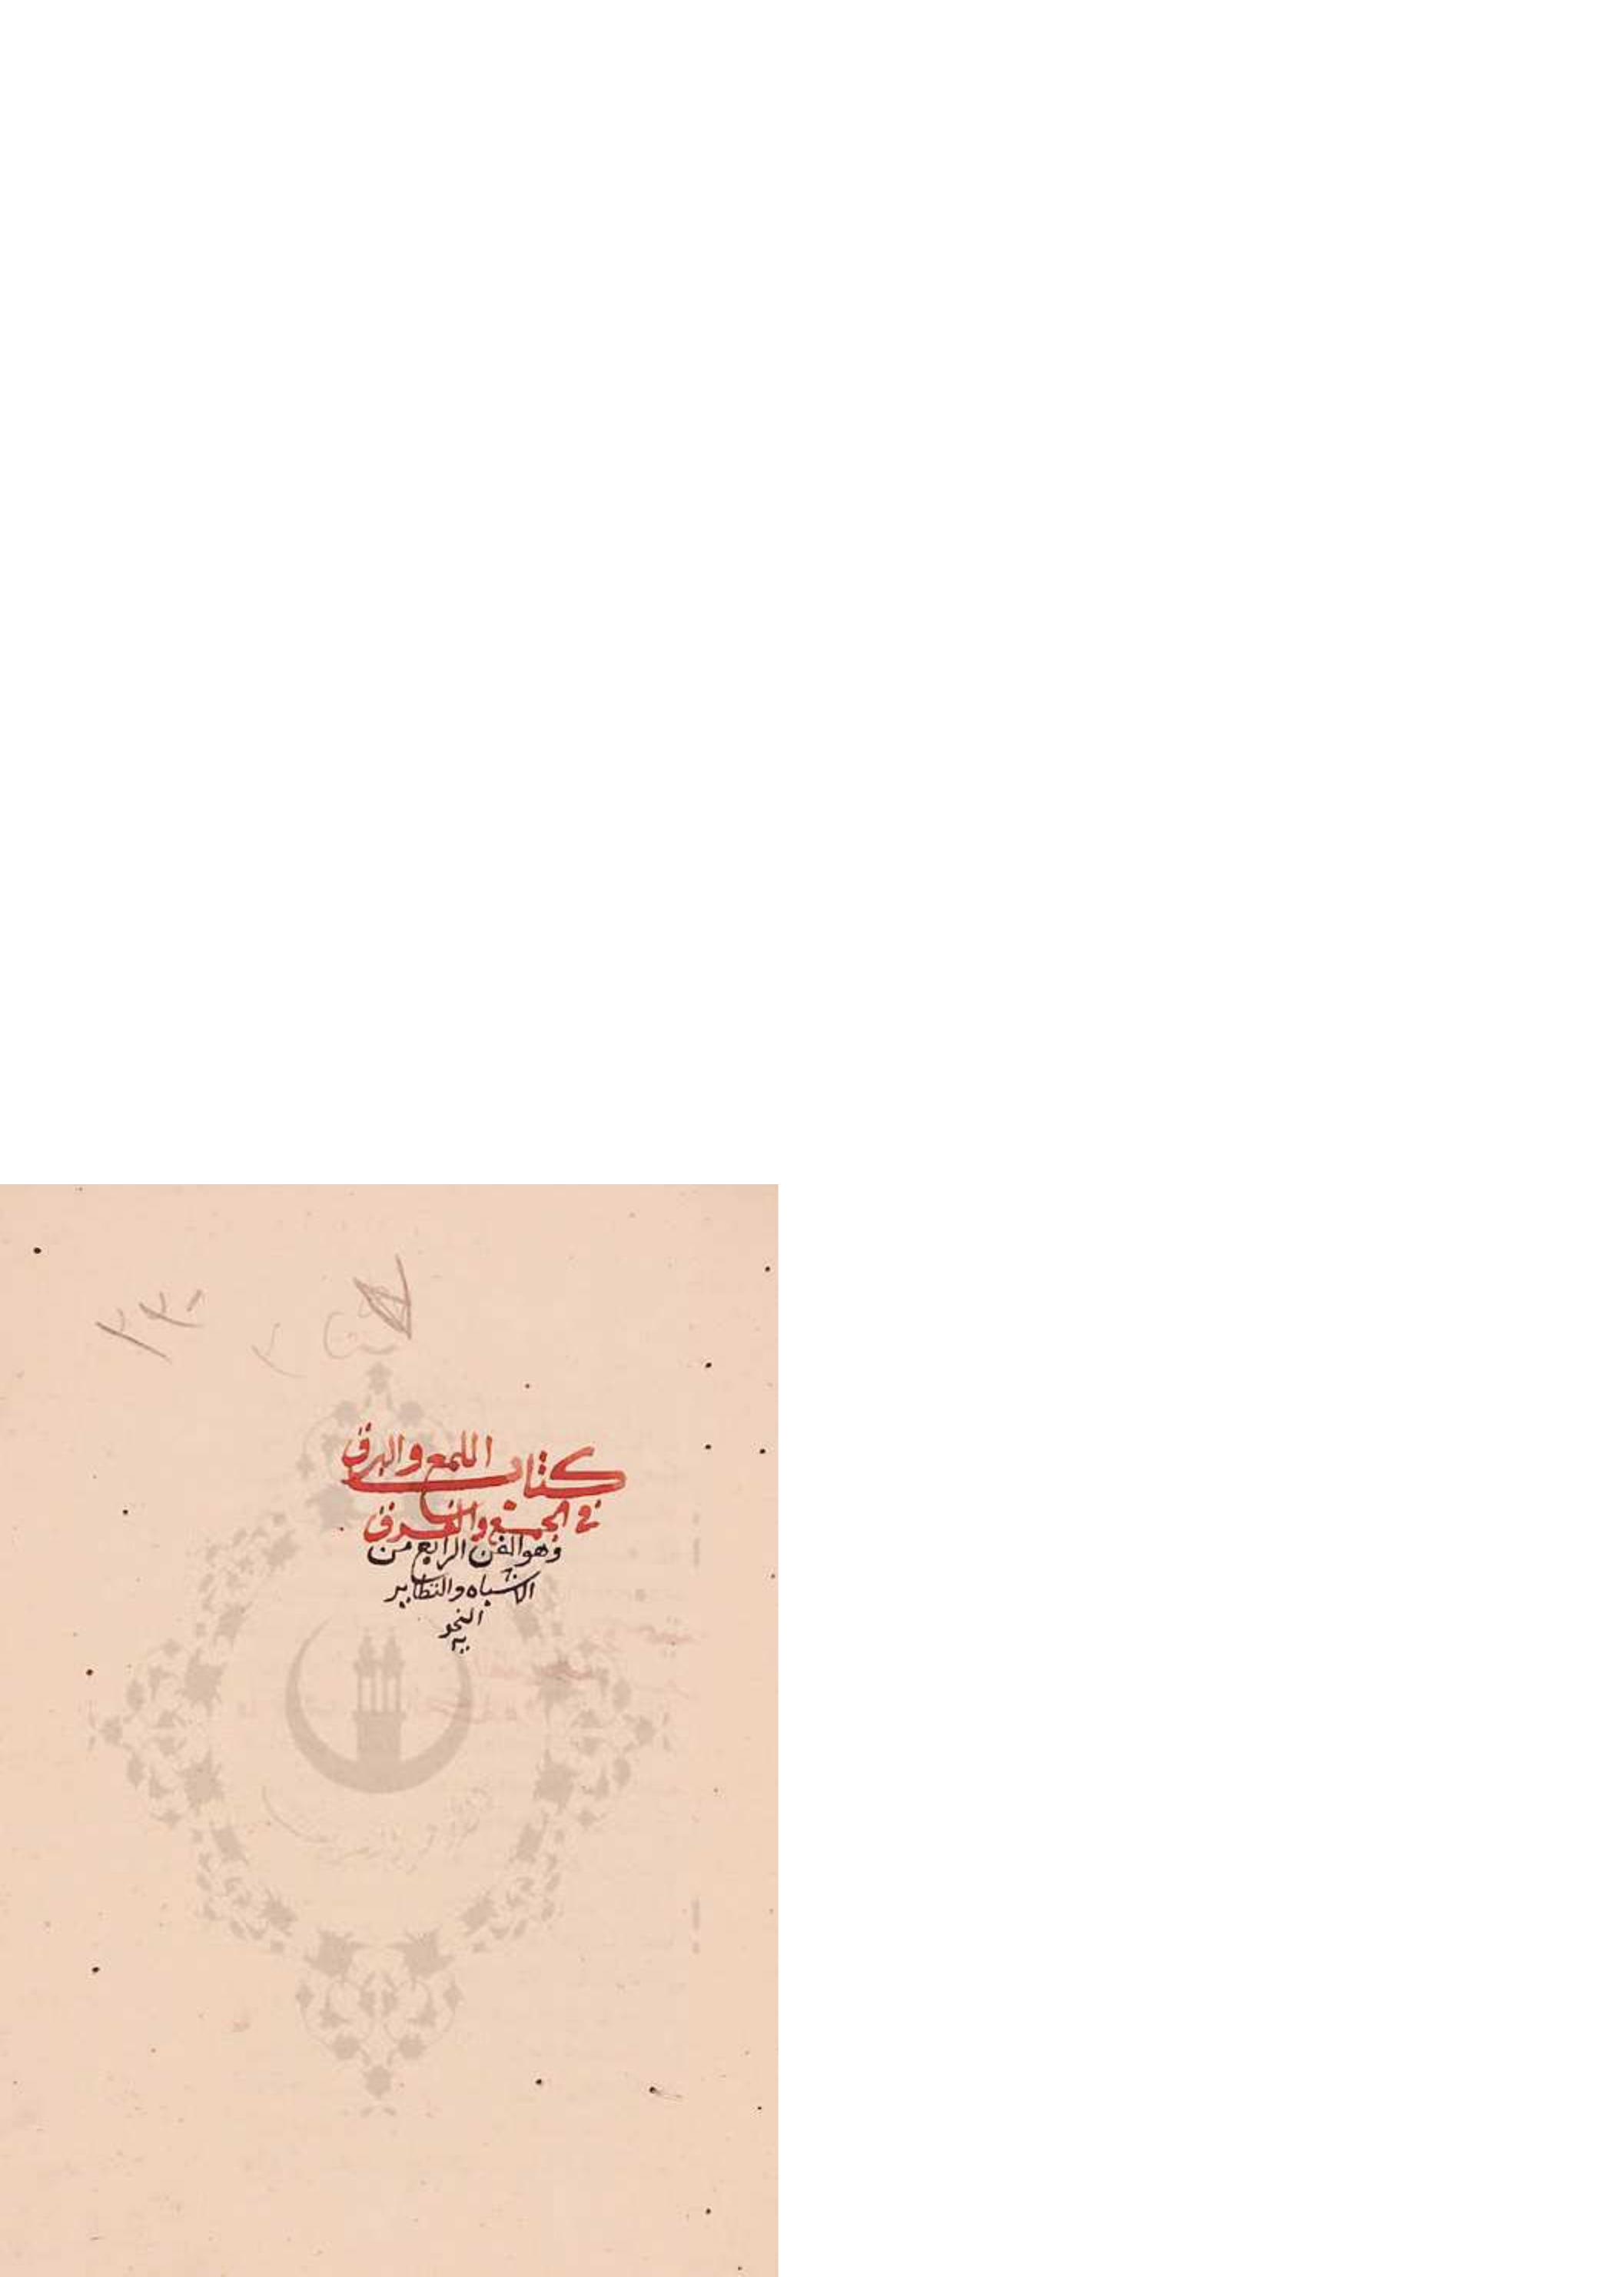 ٢٢٠
كتاب اللمع والبرق
في الجمع والفرق
وهو الفن الرابع من
الاشباه والنظاير
النحو
يه